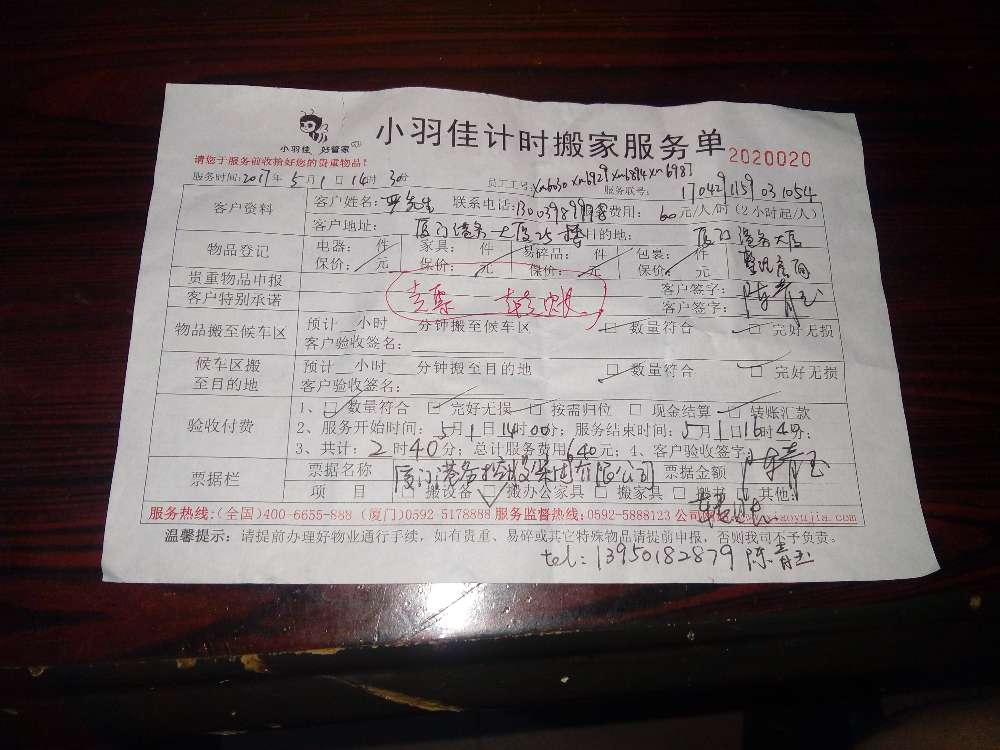 小羽佳 好管家
小羽佳计时搬家服务单 2020020
请您于服务前收拾好您的贵重物品！
服务时间:2017年5月1日14时30分 员工工号: 服务联号: 170429115903 1054
客户资料 客户姓名: 先生 联系电话: 费用: 60元/人/时(2小时起/人)
客户地址: 厦门港务大厦25楼 目的地: 厦门港务大厦
物品登记 电器: 件 家具: 件 易碎品: 件 包装: 件
保价: 元 保价: 元 保价: 元 保价: 元
贵重物品申报 客户签字: 陈青玉
客户特别承诺 客户签字:
物品搬至候车区 预计__小时__分钟搬至候车区 □ 数量符合 □ 完好无损
客户验收签名:
候车区搬至目的地 预计__小时__分钟搬至目的地 □ 数量符合 □ 完好无损
客户验收签名:
验收付费 1、□ 数量符合 □ 完好无损 □ 按需归位 □ 现金结算 □ 转账汇款
2、服务开始时间: 5月1日14时00分; 服务结束时间: 5月1日16时40分;
3、共计: 2时40分; 总计服务费用640元; 4、客户验收签字: 陈青玉
票据栏 票据名称 厦门港务控股集团有限公司 票据金额
项 目 □ 搬设备 □ 搬办公家具 □ 搬家具 □ 搬书 □ 其他:
服务热线:(全国)400-6655-888 (厦门)0592-5178888 服务监督热线:0592-5888123 公司 xiaoyujia.com
温馨提示: 请提前办理好物业通行手续，如有贵重、易碎或其它特殊物品请提前申报，否则我司不予负责。
tel: 13950182879 陈青玉